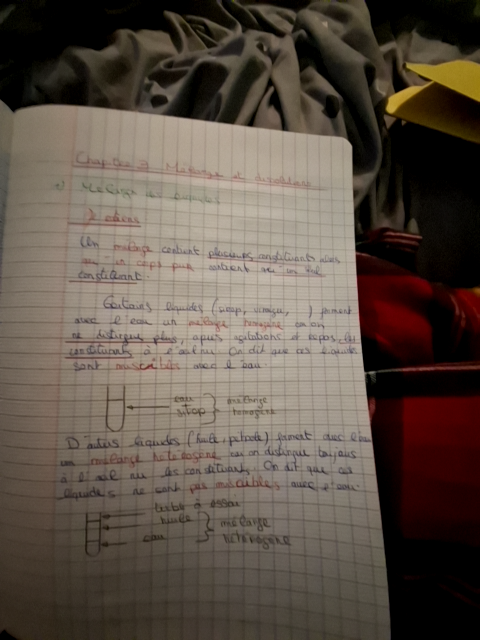 Chapitre 3 Mélange et dissolution
1) Mélange de liquides
Un mélange contient plusieurs constituants alors
qu'un corps pur contient qu'un seul
constituant.
Certains liquides (sirop, vinaigre, ) forment
avec l'eau un mélange homogène où on
ne distingue plus, après agitations et repos, les
constituants à l'œil nu. On dit que ces liquides
sont miscibles avec l'eau.
eau
+
sirop
mélange
homogène
D'autres liquides (huile, pétrole) forment avec l'eau
un mélange hétérogène où on distingue toujours
à l'œil nu les constituants. On dit que ces
liquides ne sont pas miscibles avec l'eau.
tube à essai
huile
eau
mélange
hétérogène